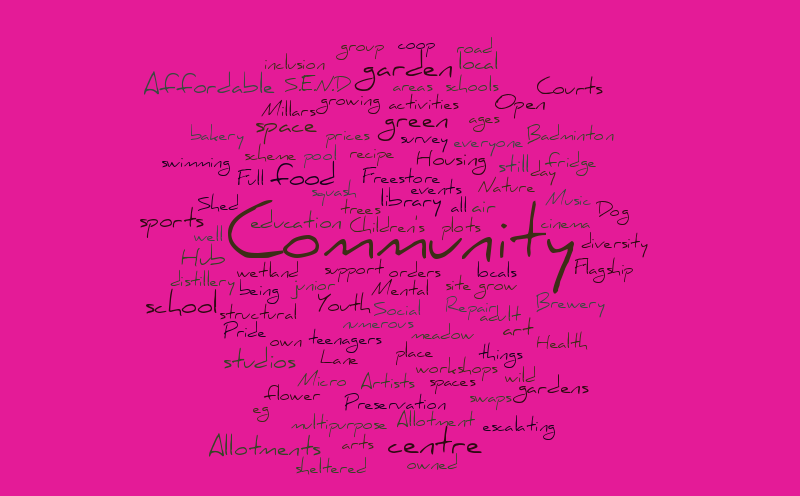 group coop road
inclusion garden local
Affordable S.E.N.D areas schools Courts
Millars growing activities Open
bakery space prices green ages
survey everyone Badminton
swimming scheme pool recipe Housing still day fridge
Full food Freestore
squash events Nature
Shed trees library all air Music Dog
sports education Children's plots cinema
well Community diversity
Hub
wetland support orders locals Flagship
distillery being junior Mental site grow
school structural Youth Social Repair adult Brewery
Pride numerous art
own teenagers meadow Health
studios Lane place things
workshops
Micro Artists spaces wild
flower Preservation swaps gardens
eg
multipurpose Allotment escalating
Allotments arts centre
sheltered owned